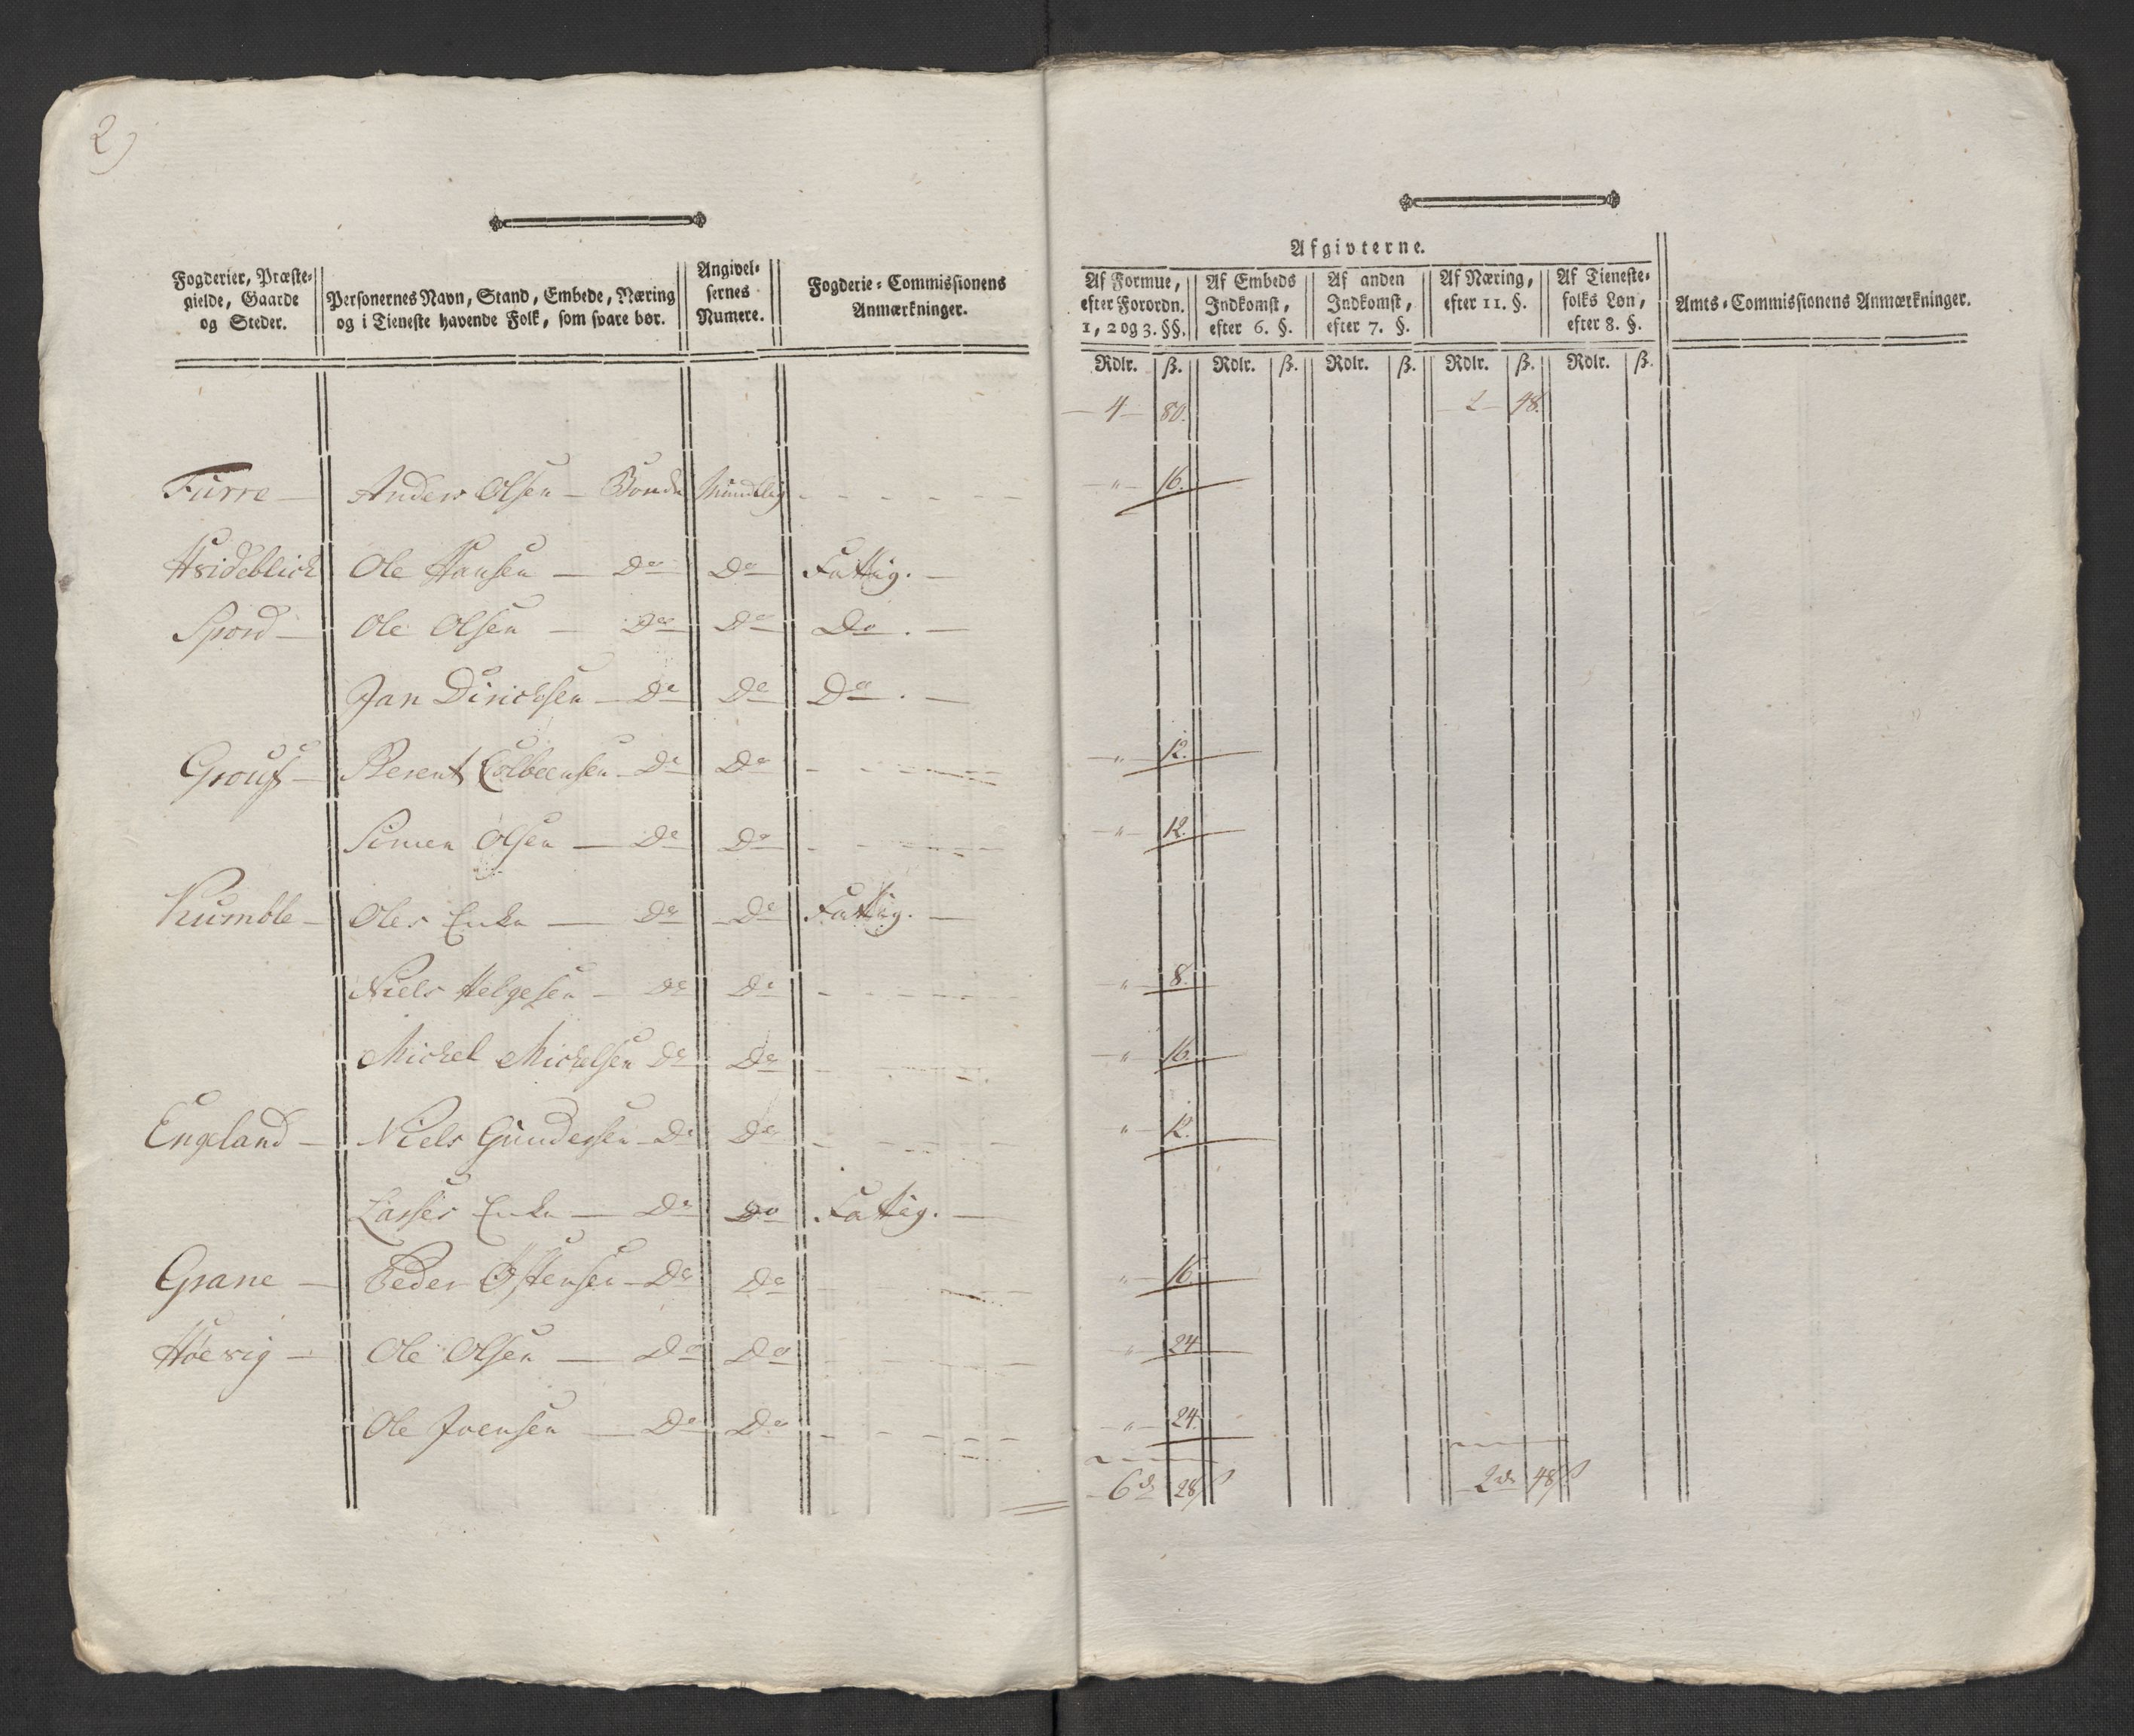 2)
Fogderier, Præste-
gielde, Gaarde
og Steder.
Personernes Navn, Stand, Embede, Næring
og i Tieneste havende Folk, som svare bør.
Angivel-
sernes
Numere.
Fogderie-Commissionens
Anmærkninger.
Afgivterne.
Af Formue,
efter Forordn.
1, 2 og 3. §§.
Af Embeds
Indkomst,
efter 6. §.
Af anden
Indkomst,
efter 7. §.
Af Næring,
efter 11. §.
Af Tieneste-
folks Løn,
efter 8. §.
Amts-Commissionens Anmærkninger.
Rdlr. ß. Rdlr. ß. Rdlr. ß. Rdlr. ß. Rdlr. ß.
— 4 — 80. — 2 — 48.
Furre — Anders Olsen — Bonde Mundtlig - - - - - - — " — 16.
Hvideblich Ole Hansen — Do Do Fattig. —
Spord — Ole Olsen — Do Do Do. —
Jan Dirichsen — Do Do Do. —
Grouf — Berent Colbeensen — Do Do - - - - - — " — 12.
Simen Olsen — Do Do - - - - - — " — 12.
Kumble — Oles Enke — Do Do Fattig. —
Niels Helgesen — Do Do - - - - " — 8.
Michel Michelsen Do Do - - - - — " — 16.
Engeland — Niels Gundersen — Do Do - - - - " — 12.
Lasses Enke — Do Do Fattig. —
Grane — Peder Østensen — Do Do - - - - " — 16.
Høevig — Ole Olsen — Do Do - - - - " — 24
Ole Joensen — Do Do - - - - - " — 24.
6 d 28 ß 2 d 48 ß